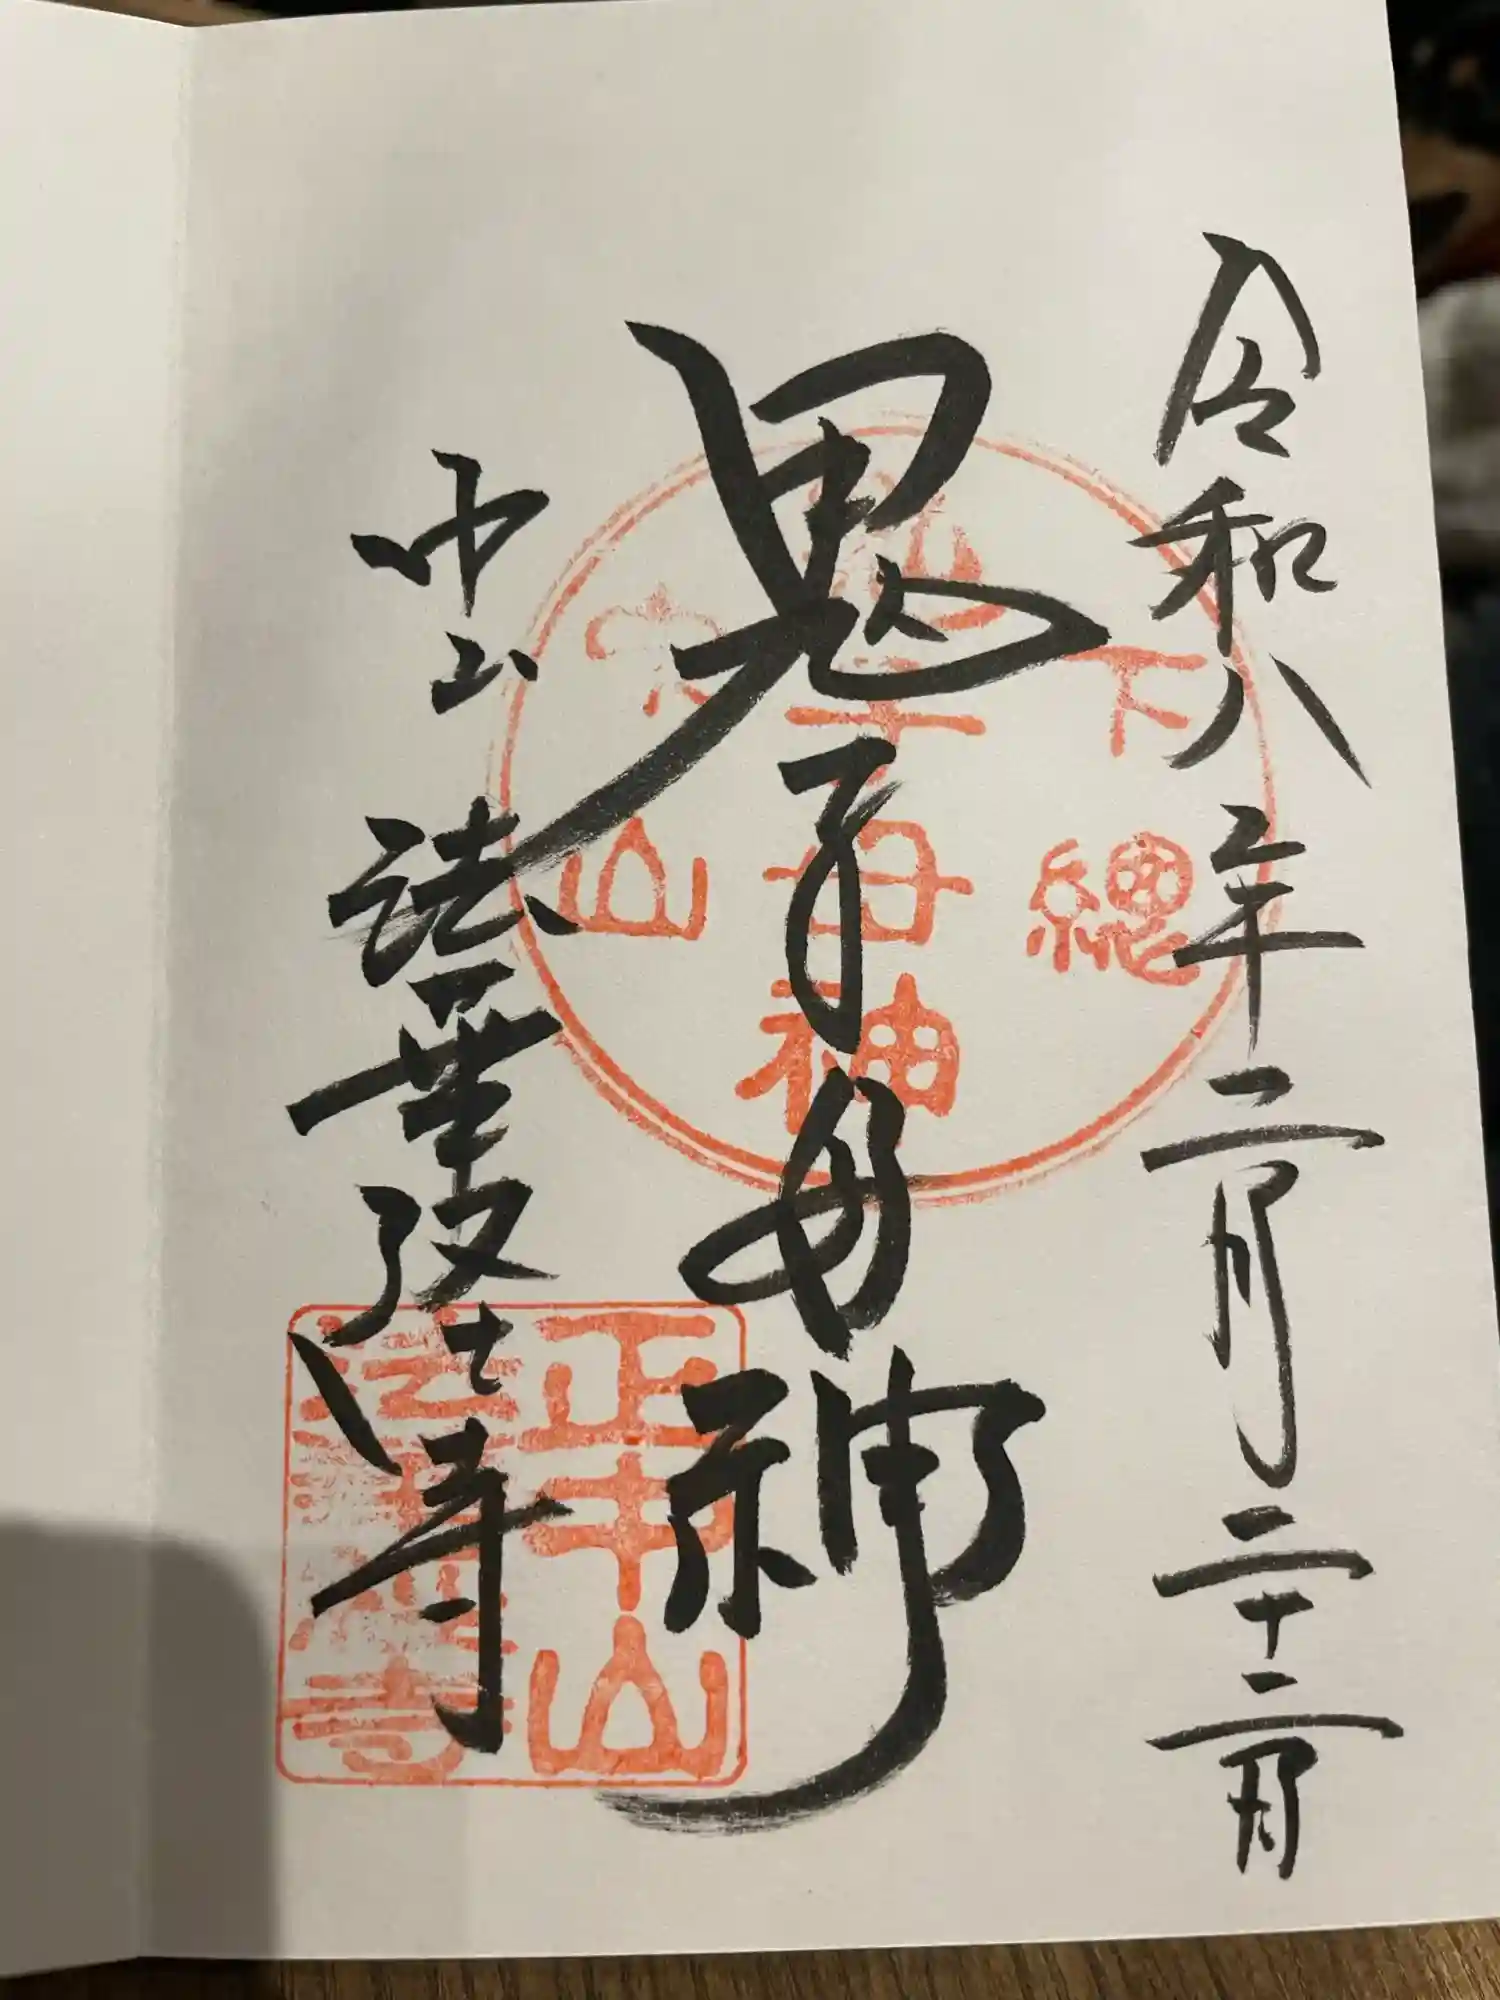 令和八年二月二十二日
鬼子母神
中山 法華経寺
下總
子母神
山
正中山
法華経寺